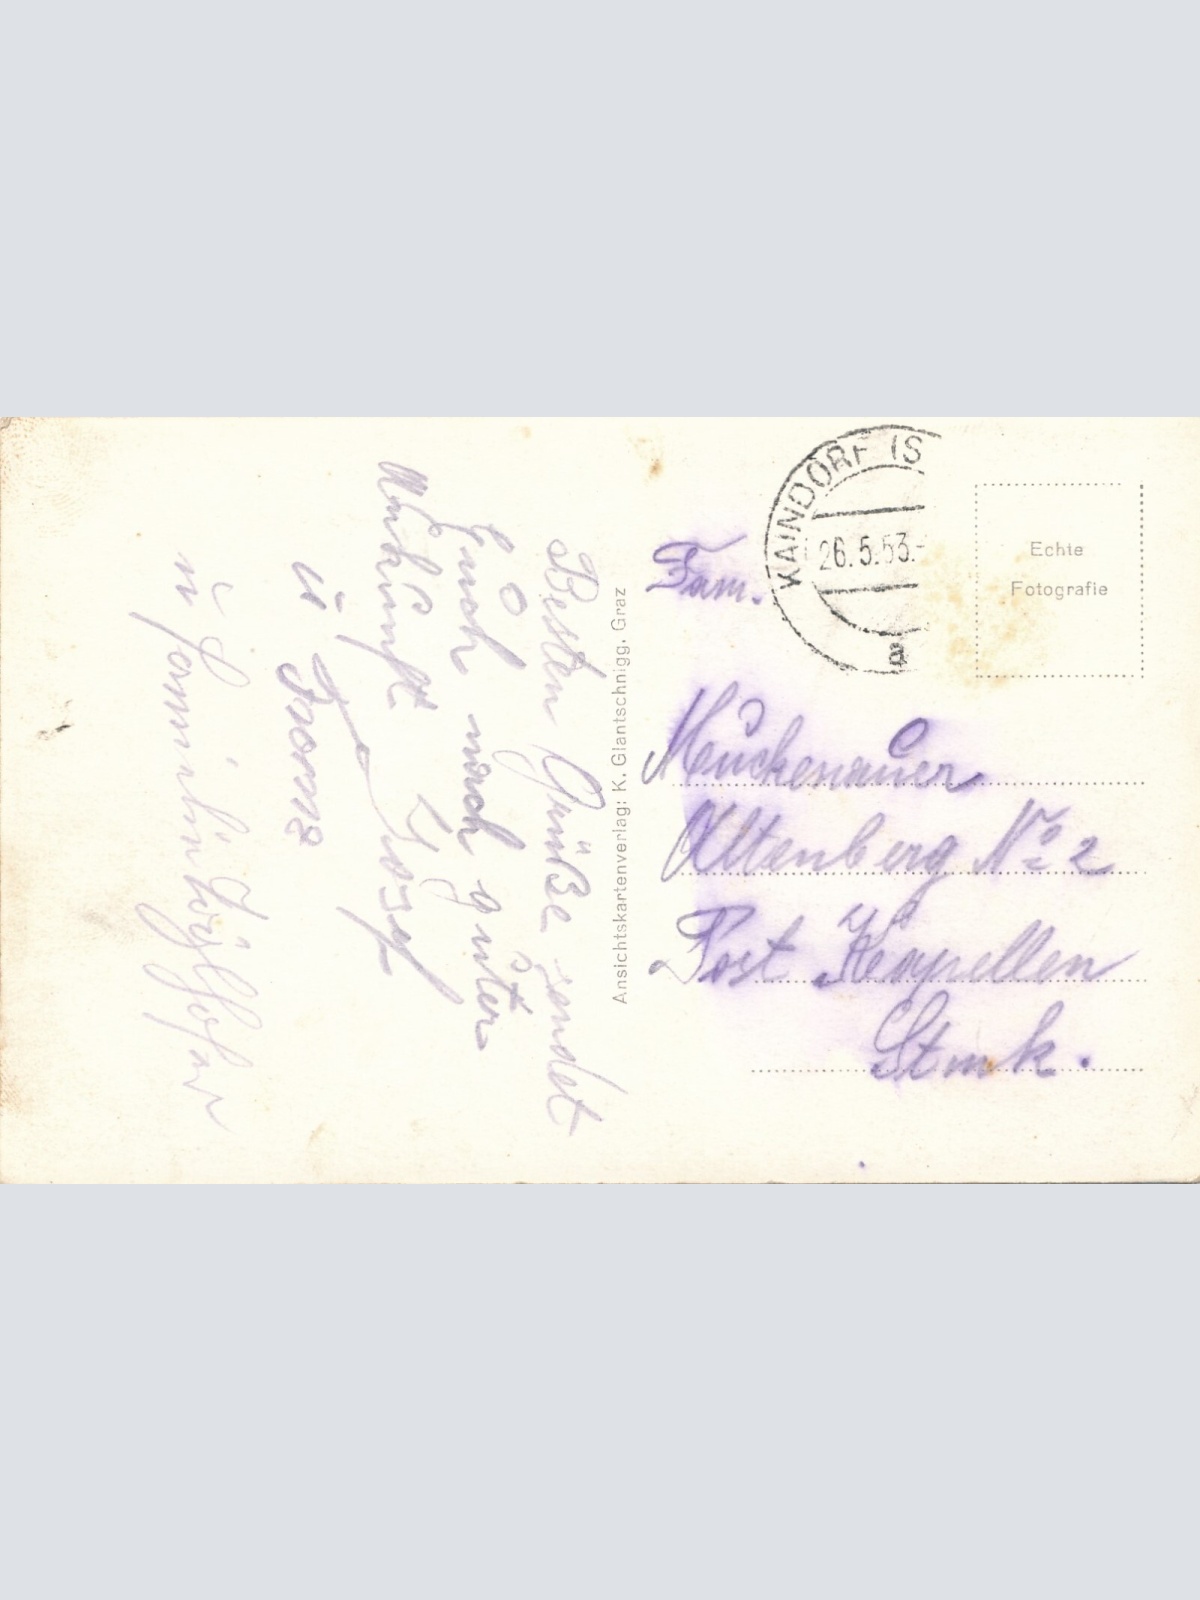 Besten Grüße sendet
Euch nach guter
Ankunft Josef
u Franz
u Familie
Ansichtskartenverlag: K. Glantschnigg, Graz
KAINDORF (S
26.5.53.-
a
Echte
Fotografie
Fam.
Muckenauer
Altenberg No 2
Post Kapellen
Stmk.